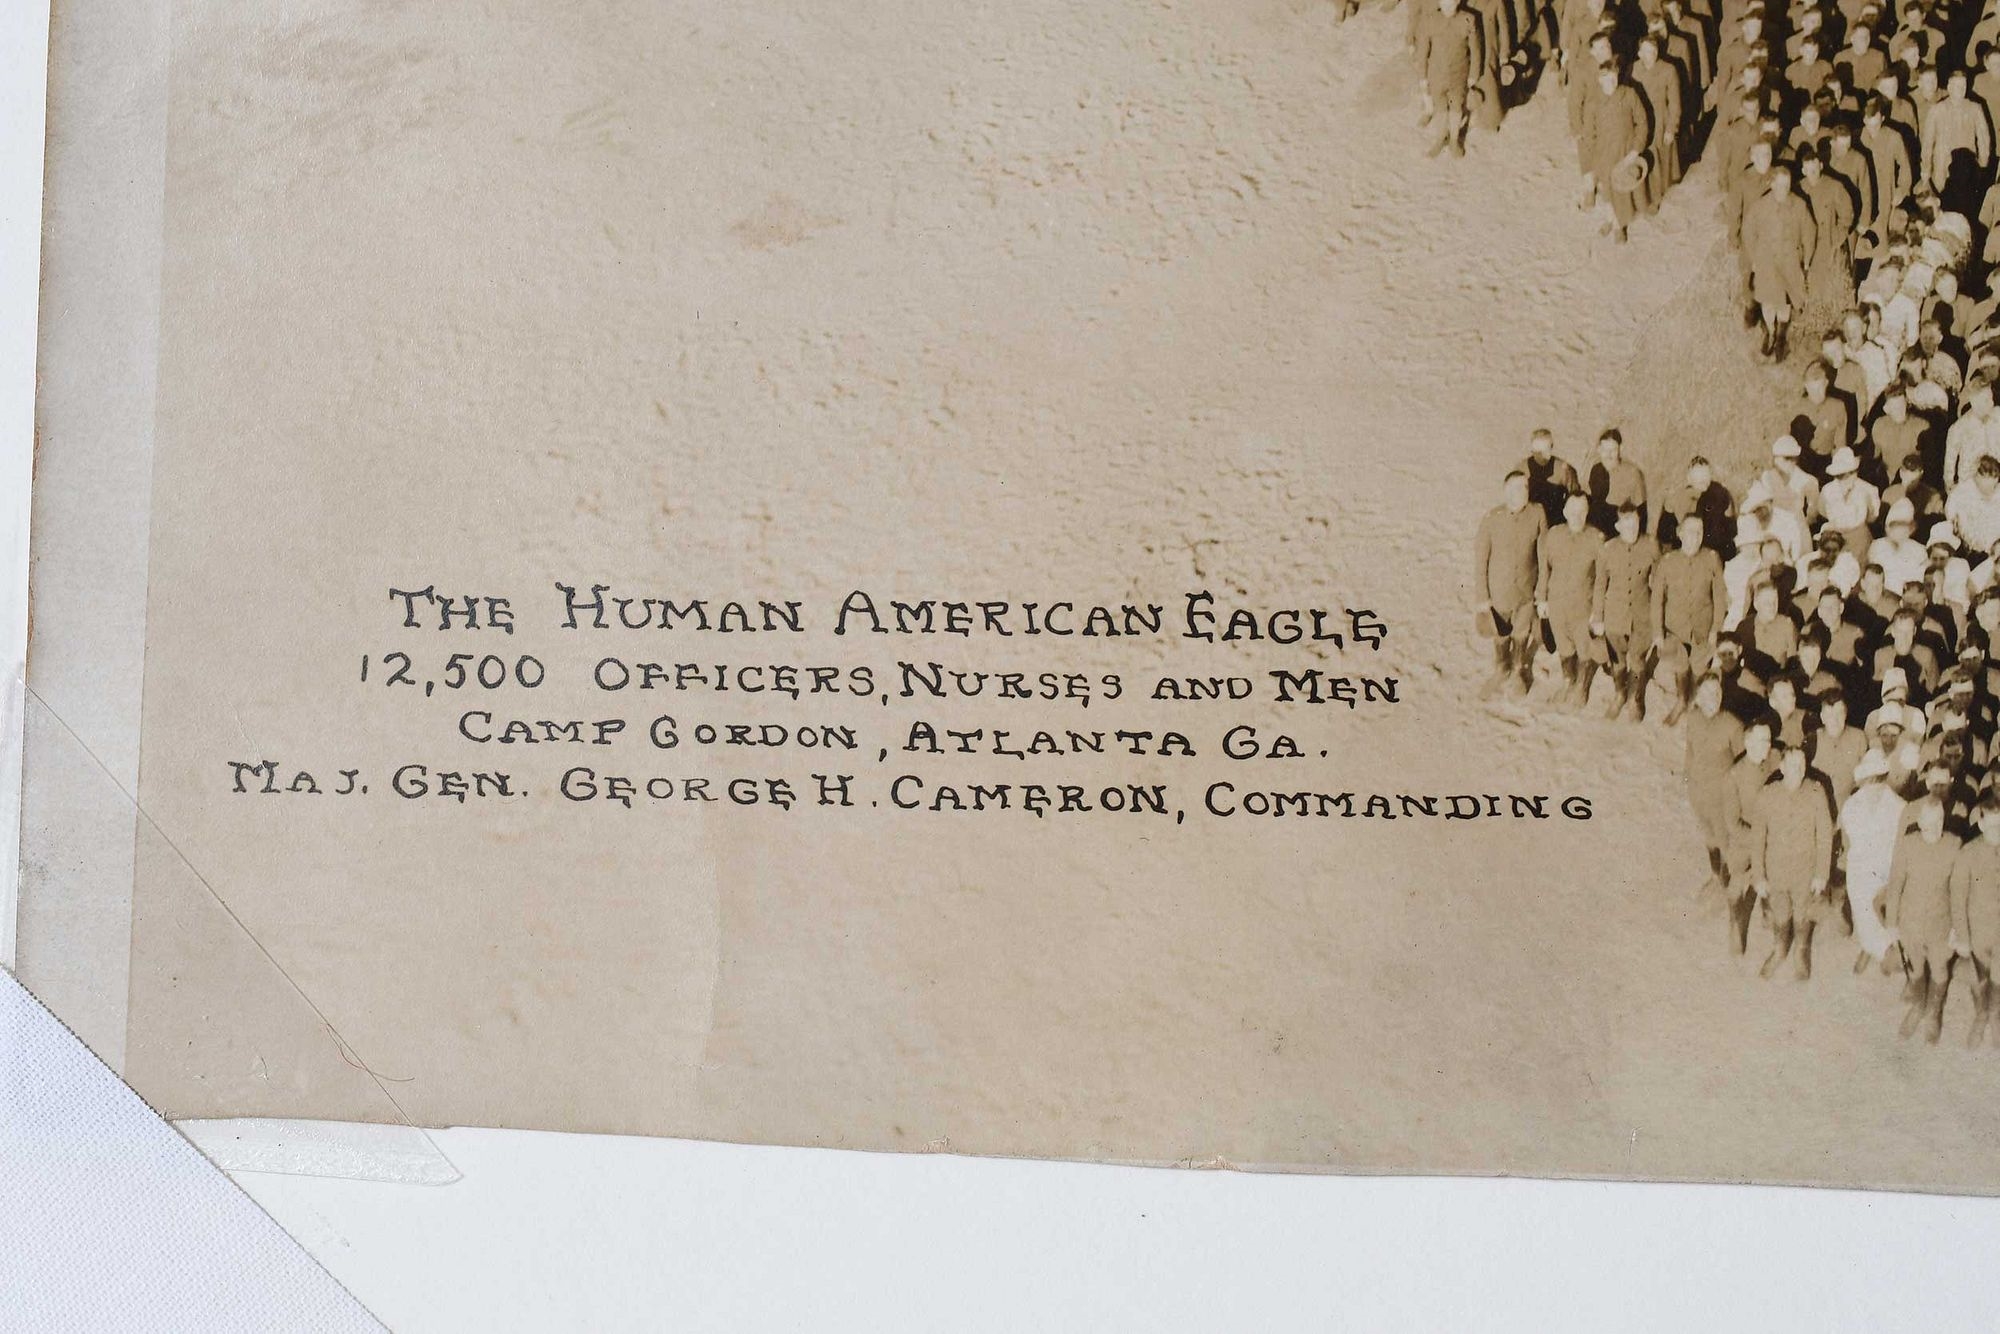 The Human American Eagle
12,500 Officers, Nurses and Men
Camp Gordon, Atlanta Ga.
Maj. Gen. George H. Cameron, Commanding